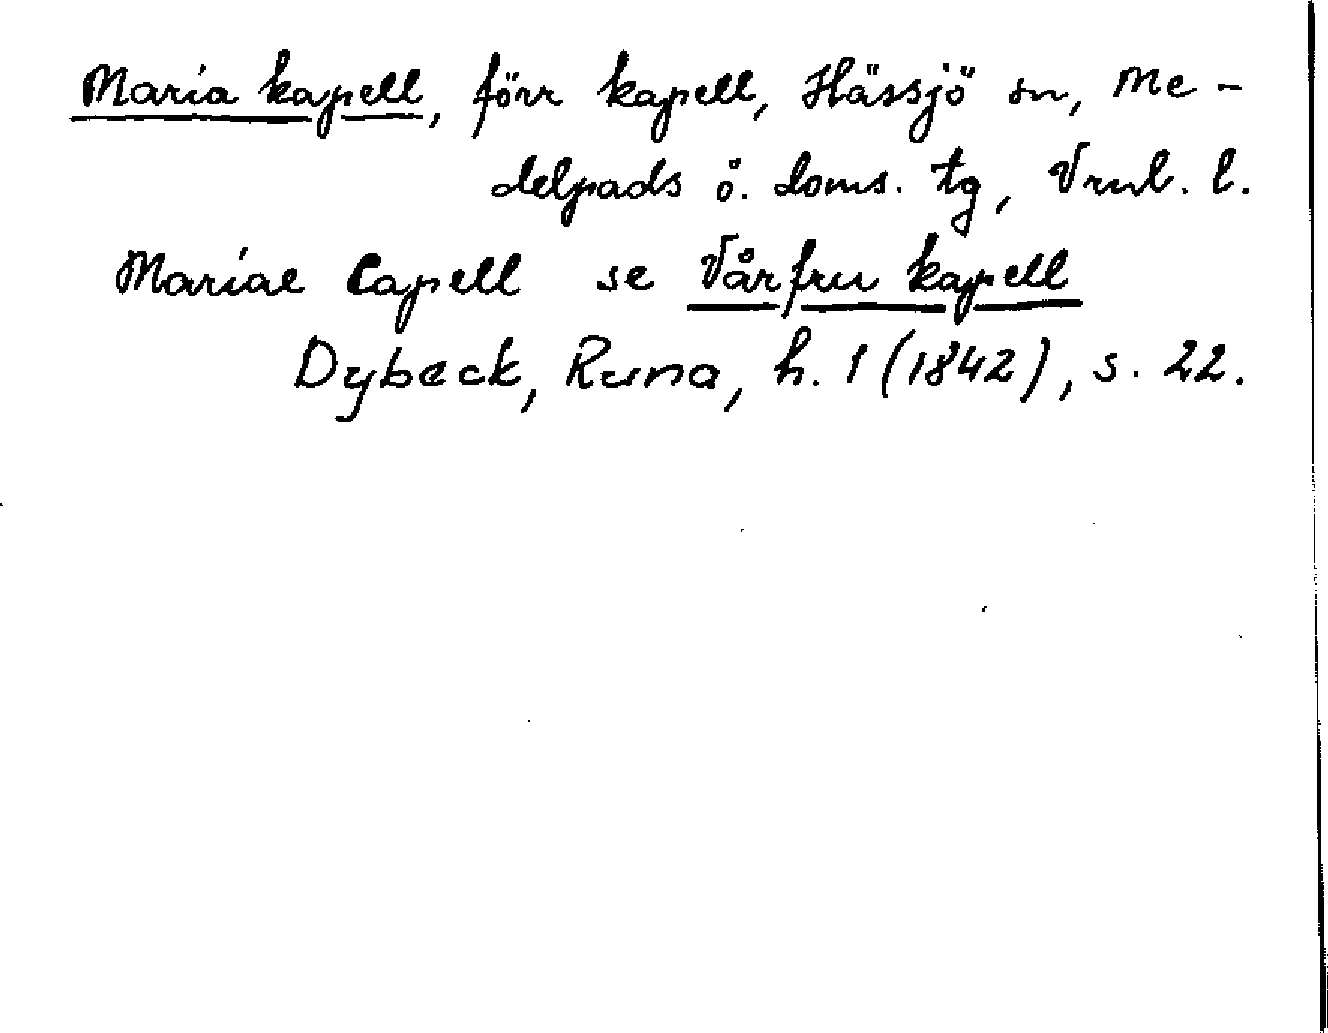 Maria kapell, förr kapell, Hässjö sn, Me-
delpads ö. doms. tg, Vrnl. l.
Mariae Capell se Vårfru kapell
Dybeck, Runa, h. 1 (1842), s. 22.